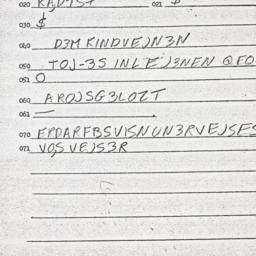 020 021
030 $
040 D3M KINDVEJN3N
050 TOJ-3S INLE'J3NEN QFO
051 O
060 AROJSG3LOZT
061 —
070 EPDARFBSVISNUN3RVEJSES
071 VOS VEJS3R